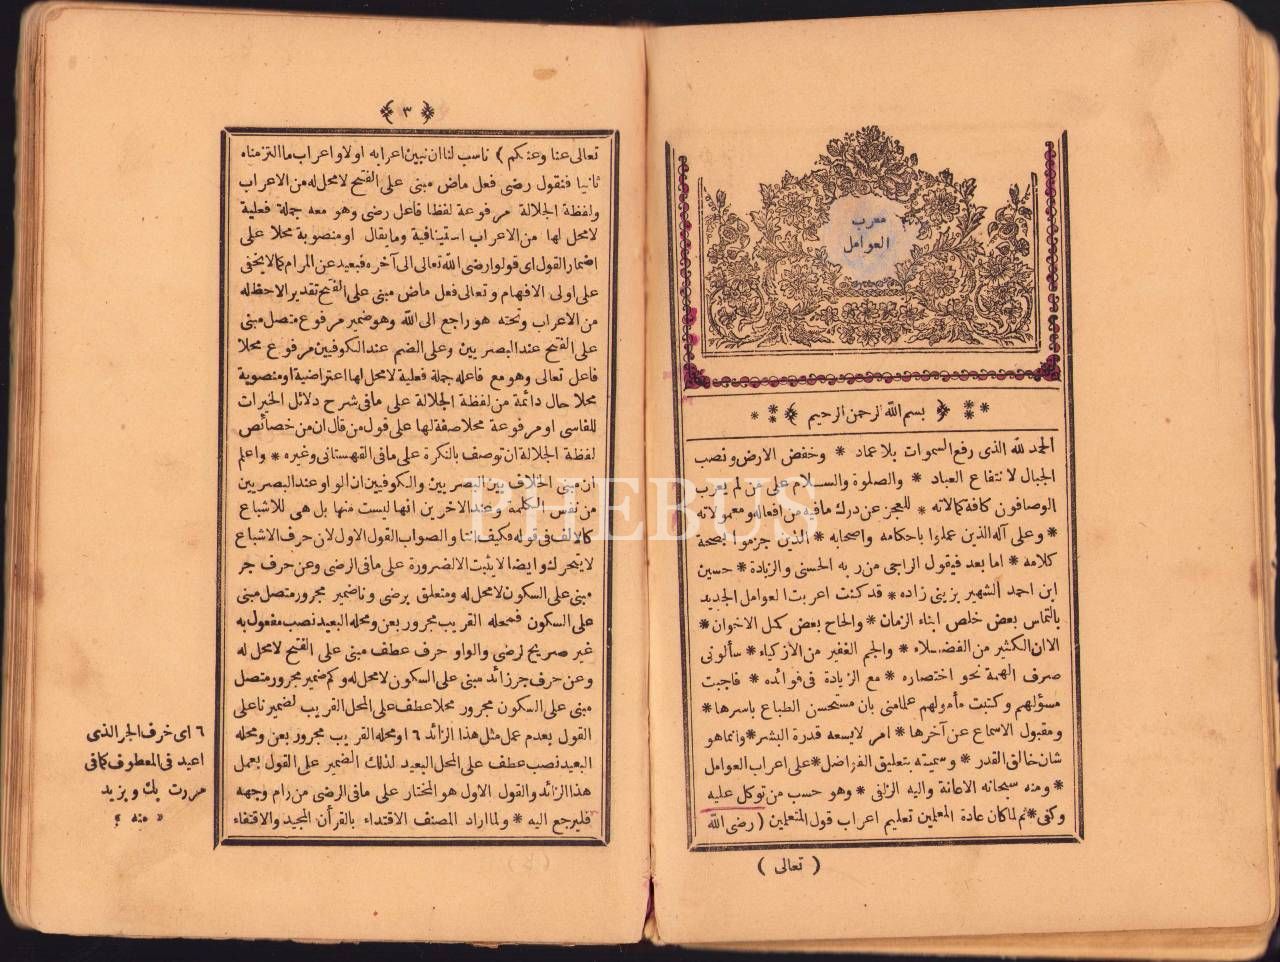 معرب
العوامل
بسم الله الرحمن الرحيم
الحمد لله الذى رفع السموات بلا عماد * وخفض الارض ونصب
الجبال لانتفاع العباد * والصلوة والسلام على من لم يعرب
الوصافون كافة كمالاته * للعجز عن درك مافيه من افعاله ومعمولاته
* وعلى آله الذين عملوا باحكامه واصحابه * الذين جزموا بصحة
كلامه * اما بعد فيقول الراجى من ربه الحسنى والزيادة * حسين
ابن احمد الشهير بزينى زاده * قد كنت اعربت العوامل الجديد
بالتماس بعض خلص ابناء الزمان * والحاح بعض كمل الاخوان *
الان الكثير من الفضلاء * والجم الغفير من الازكياء * سألونى
صرف الهمة نحو اختصاره * مع الزيادة فى فوائده * فاجبت
مسؤلهم وكتبت مأمولهم علما منى بان مستحسن الطباع باسرها *
ومقبول الاسماع عن آخرها * امر لايسعه قدرة البشر * وانما هو
شان خالق القدر * وسميته بتعليق الفراضل * على اعراب العوامل
* ومنه سبحانه الاعانة واليه الزلفى * وهو حسب من توكل عليه
وكفى * ثم لما كان عادة المعلمين تعليم اعراب قول المتعلمين ( رضى الله
( تعالى )
﴿ ٣ ﴾
تعالى عنا وعنكم ) ناسب لنا ان نبين اعرابه اولا واعراب ما التزمناه
ثانيا فنقول رضى فعل ماض مبنى على الفتح لامحل له من الاعراب
ولفظة الجلالة مرفوعة لفظا فاعل رضى وهو معه جملة فعلية
لامحل لها من الاعراب استينافية وما يقال او منصوبة محلا على
اضمار القول اى قولوا رضى الله تعالى الى آخره فبعيد عن المرام كما لايخفى
على اولى الافهام وتعالى فعل ماض مبنى على الفتح تقديرا لاحظ له
من الاعراب وتحته هو راجع الى الله وهو ضمير مرفوع متصل مبنى
على الفتح عند البصريين وعلى الضم عند الكوفيين مرفوع محلا
فاعل تعالى وهو مع فاعله جملة فعلية لامحل لها اعتراضية او منصوبة
محلا حال دائمة من لفظة الجلالة على مافى شرح دلائل الخيرات
للفاسى او مرفوعة محلا صفة لها على قول من قال ان من خصائص
لفظة الجلالة ان توصف بالنكرة على مافى القهستانى وغيره * واعلم
ان مبنى الخلاف بين البصريين والكوفيين ان الواو عند البصريين
من نفس الكلمة وعند الاخرين انها ليست منها بل هى للاشباع
كالالف فى قوله فكيف انتا والصواب القول الاول لان حرف الاشباع
لايتحرك وايضا لايثبت الا لضرورة على مافى الرضى وعن حرف جر
مبنى على السكون لامحل له ومتعلق برضى ونا ضمير مجرور متصل مبنى
على السكون فمحله القريب مجرور بعن ومحله البعيد نصب مفعول به
غير صريح لرضى والواو حرف عطف مبنى على الفتح لامحل له
وعن حرف جر زائد مبنى على السكون لامحل له وكم ضمير مجرور متصل
مبنى على السكون مجرور محلا عطف على المحل القريب لضمير نا على
القول بعدم عمل مثل هذا الزائد ٦ او محله القريب مجرور بعن ومحله
البعيد نصب عطف على المحل البعيد لذلك الضمير على القول بعمل
هذا الزائد والقول الاول هو المختار على مافى الرضى من رام وجهه
فليرجع اليه * ولما اراد المصنف الاقتداء بالقرأن المجيد والاقتفاء
٦ اى حرف الجر الذى
اعيد فى المعطوف كما فى
مررت بك وبزيد
« منه »
PHEBUS